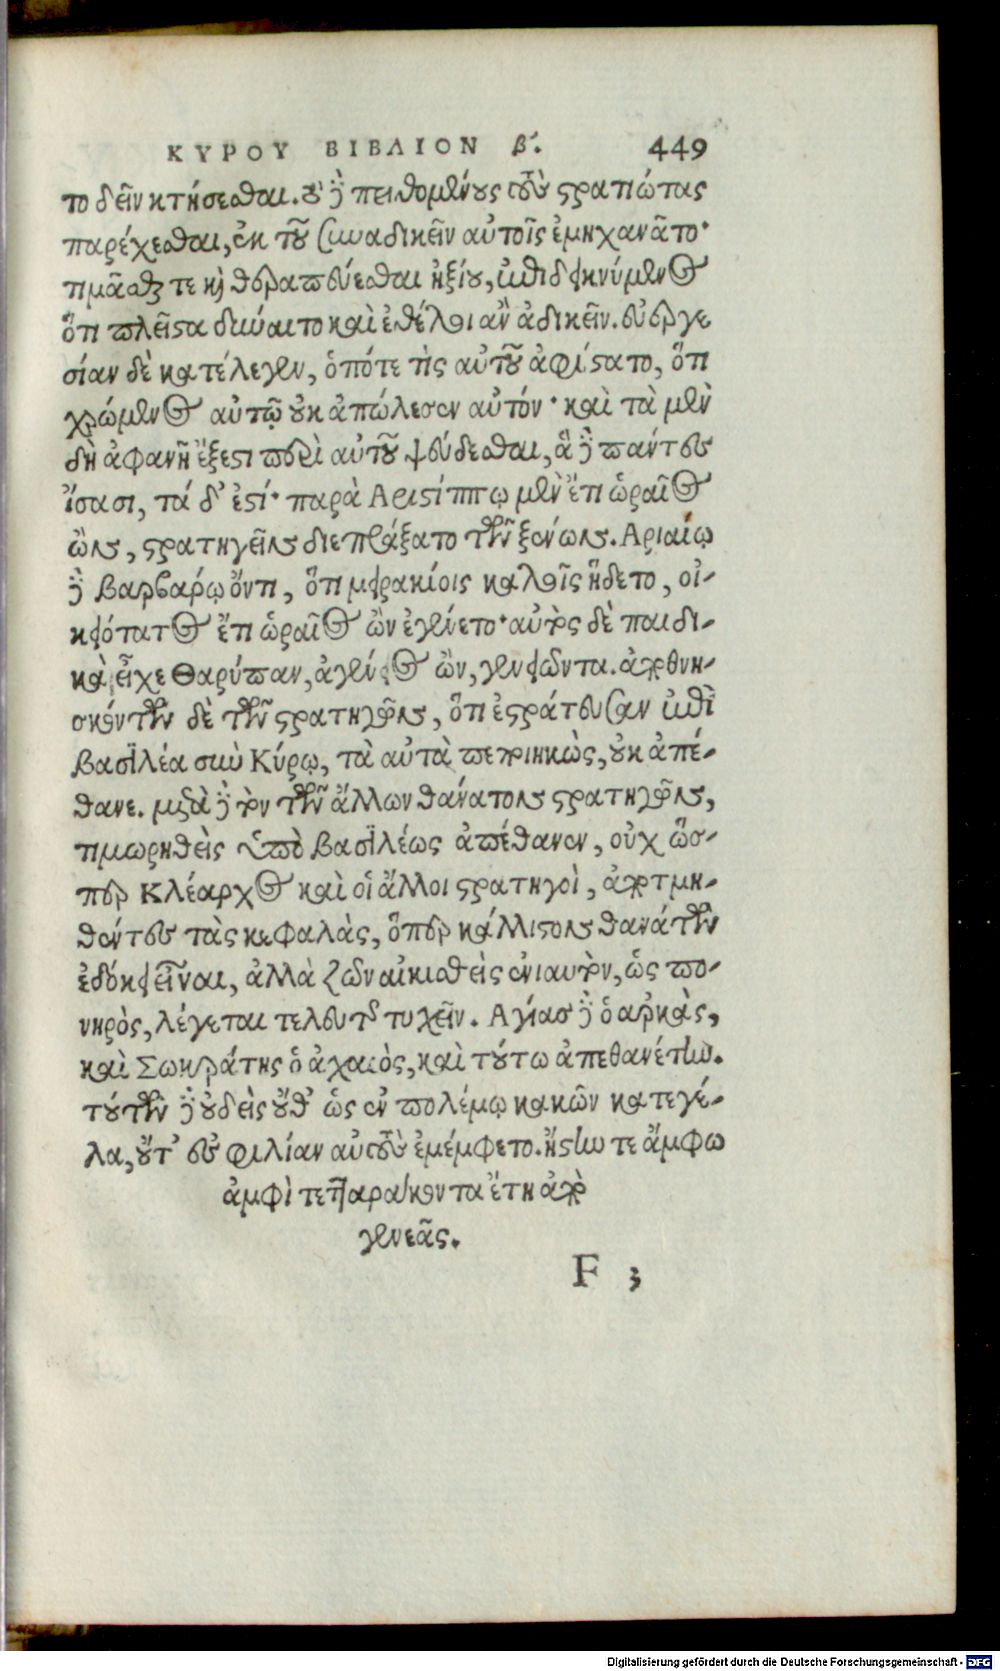 ΚΥΡΟΥ ΒΙΒΛΙΟΝ β΄. 449
το δεῖν κτήσεσθαι. τοῦ δὲ πειθομένους τοὺς στρατιώτας
παρέχεσθαι, ἐκ τοῦ συναδικεῖν αὐτοῖς ἐμηχανᾶτο·
τιμᾶσθαι τε καὶ θεραπεύεσθαι ἠξίου, ἐπιδεικνύμενος
ὅτι πλεῖστα δύναιτο καὶ ἐθέλοι ἂν ἀδικεῖν. εὐεργε
σίαν δὲ κατέλεγεν, ὁπότε τὶς αὐτοῦ ἀφίστατο, ὅτι
χρώμενος αὐτῷ οὐκ ἀπώλεσεν αὐτόν· καὶ τὰ μὲν
δὴ ἀφανῆ ἔξεστι περὶ αὐτοῦ ψεύδεσθαι, ἃ δὲ πάντες
ἴσασι, τά δ' ἐστί· παρὰ Αριστίππῳ μὲν ἔτι ὡραῖος
ὢν, στρατηγεῖν διεπράξατο τῶν ξένων. Αριαίῳ
δὲ βαρβάρῳ ὄντι, ὅτι μειρακίοις καλοῖς ἥδετο, οἰ-
κειότατος ἔτι ὡραῖος ὢν ἐγένετο· αὐτὸς δὲ παιδι-
κὰ εἶχε Θαρύπαν, ἀγένειος ὢν, γενειῶντα. ἀποθνη-
σκόντων δὲ τῶν στρατηγῶν, ὅτι ἐστράτευσαν ἐπὶ
βασιλέα σὺν Κύρῳ, τὰ αὐτὰ πεποιηκὼς, οὐκ ἀπέ-
θανε. μετὰ δὲ τὸν τῶν ἄλλων θάνατον στρατηγῶν,
τιμωρηθεὶς ὑπὸ βασιλέως ἀπέθανεν, οὐχ ὥσ-
περ Κλέαρχος καὶ οἱ ἄλλοι στρατηγοὶ, ἀποτμη-
θέντες τὰς κεφαλὰς, ὅπερ κάλλιστον θανάτων
ἐδόκει εἶναι, ἀλλὰ ζῶν αἰκισθεὶς ἐνιαυτὸν, ὡς πο-
νηρὸς, λέγεται τελευτῆς τυχεῖν. Αγίας δὲ ὁ αρκὰς,
καὶ Σωκράτης ὁ ἀχαιὸς, καὶ τούτω ἀπεθανέτην.
τούτων δὲ οὐδεὶς οὔθ' ὡς ἐν πολέμῳ κακῶν κατεγέ-
λα, οὔτ' ἐς φιλίαν αὐτοὺς ἐμέμφετο. ἤστην τε ἄμφω
ἀμφὶ τετταράκοντα ἔτη ἀπὸ
γενεᾶς.
F 3
Digitalisierung gefördert durch die Deutsche Forschungsgemeinschaft - DFG